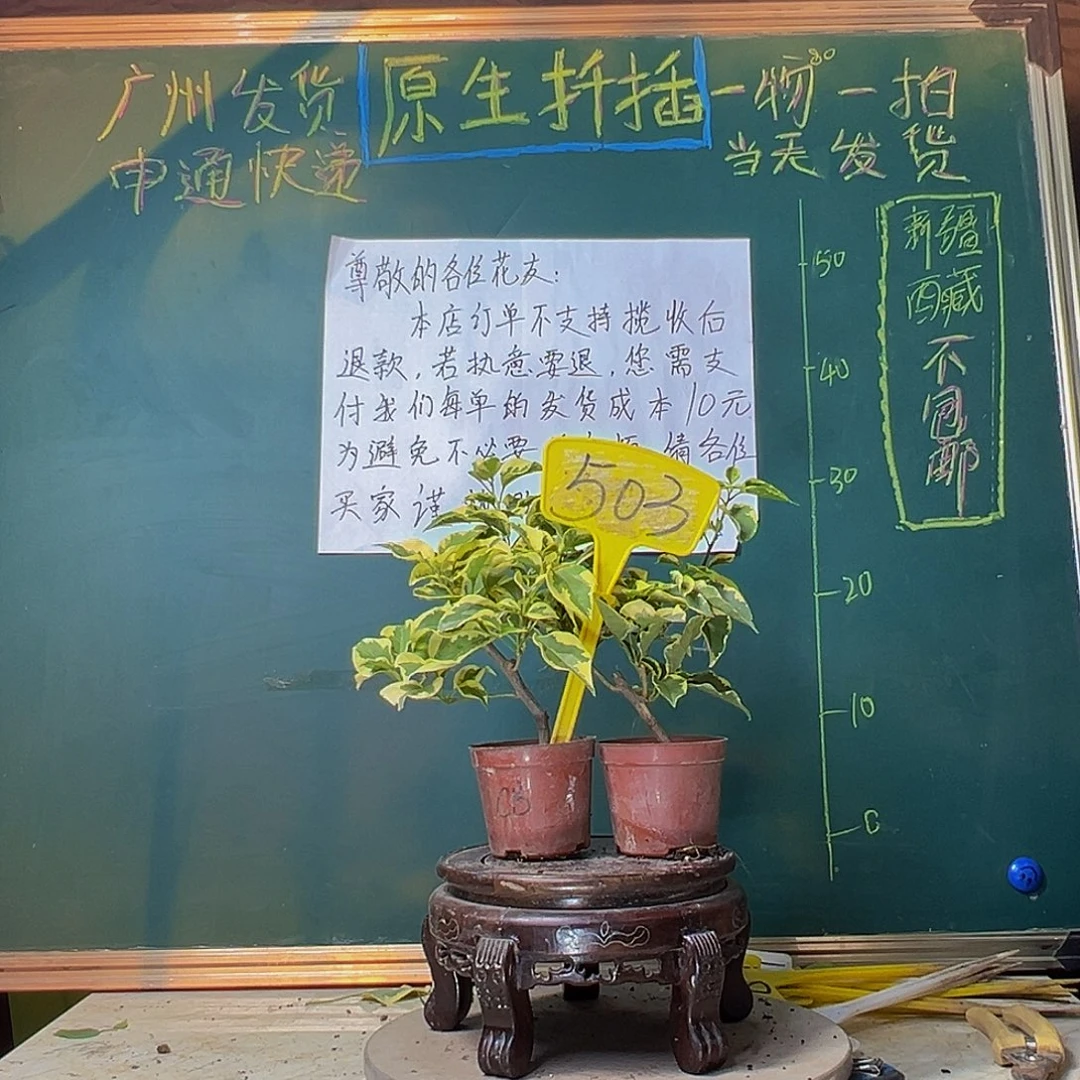 广州发货
申通快递
原生扦插
一物一拍
当天发货
新疆
西藏
不
包
邮
尊敬的各位花友:
本店订单不支持揽收后
退款,若执意要退,您需支
付我们每单的发货成本10元
为避免不必要 各位
买家谨
503
50
40
30
20
10
0